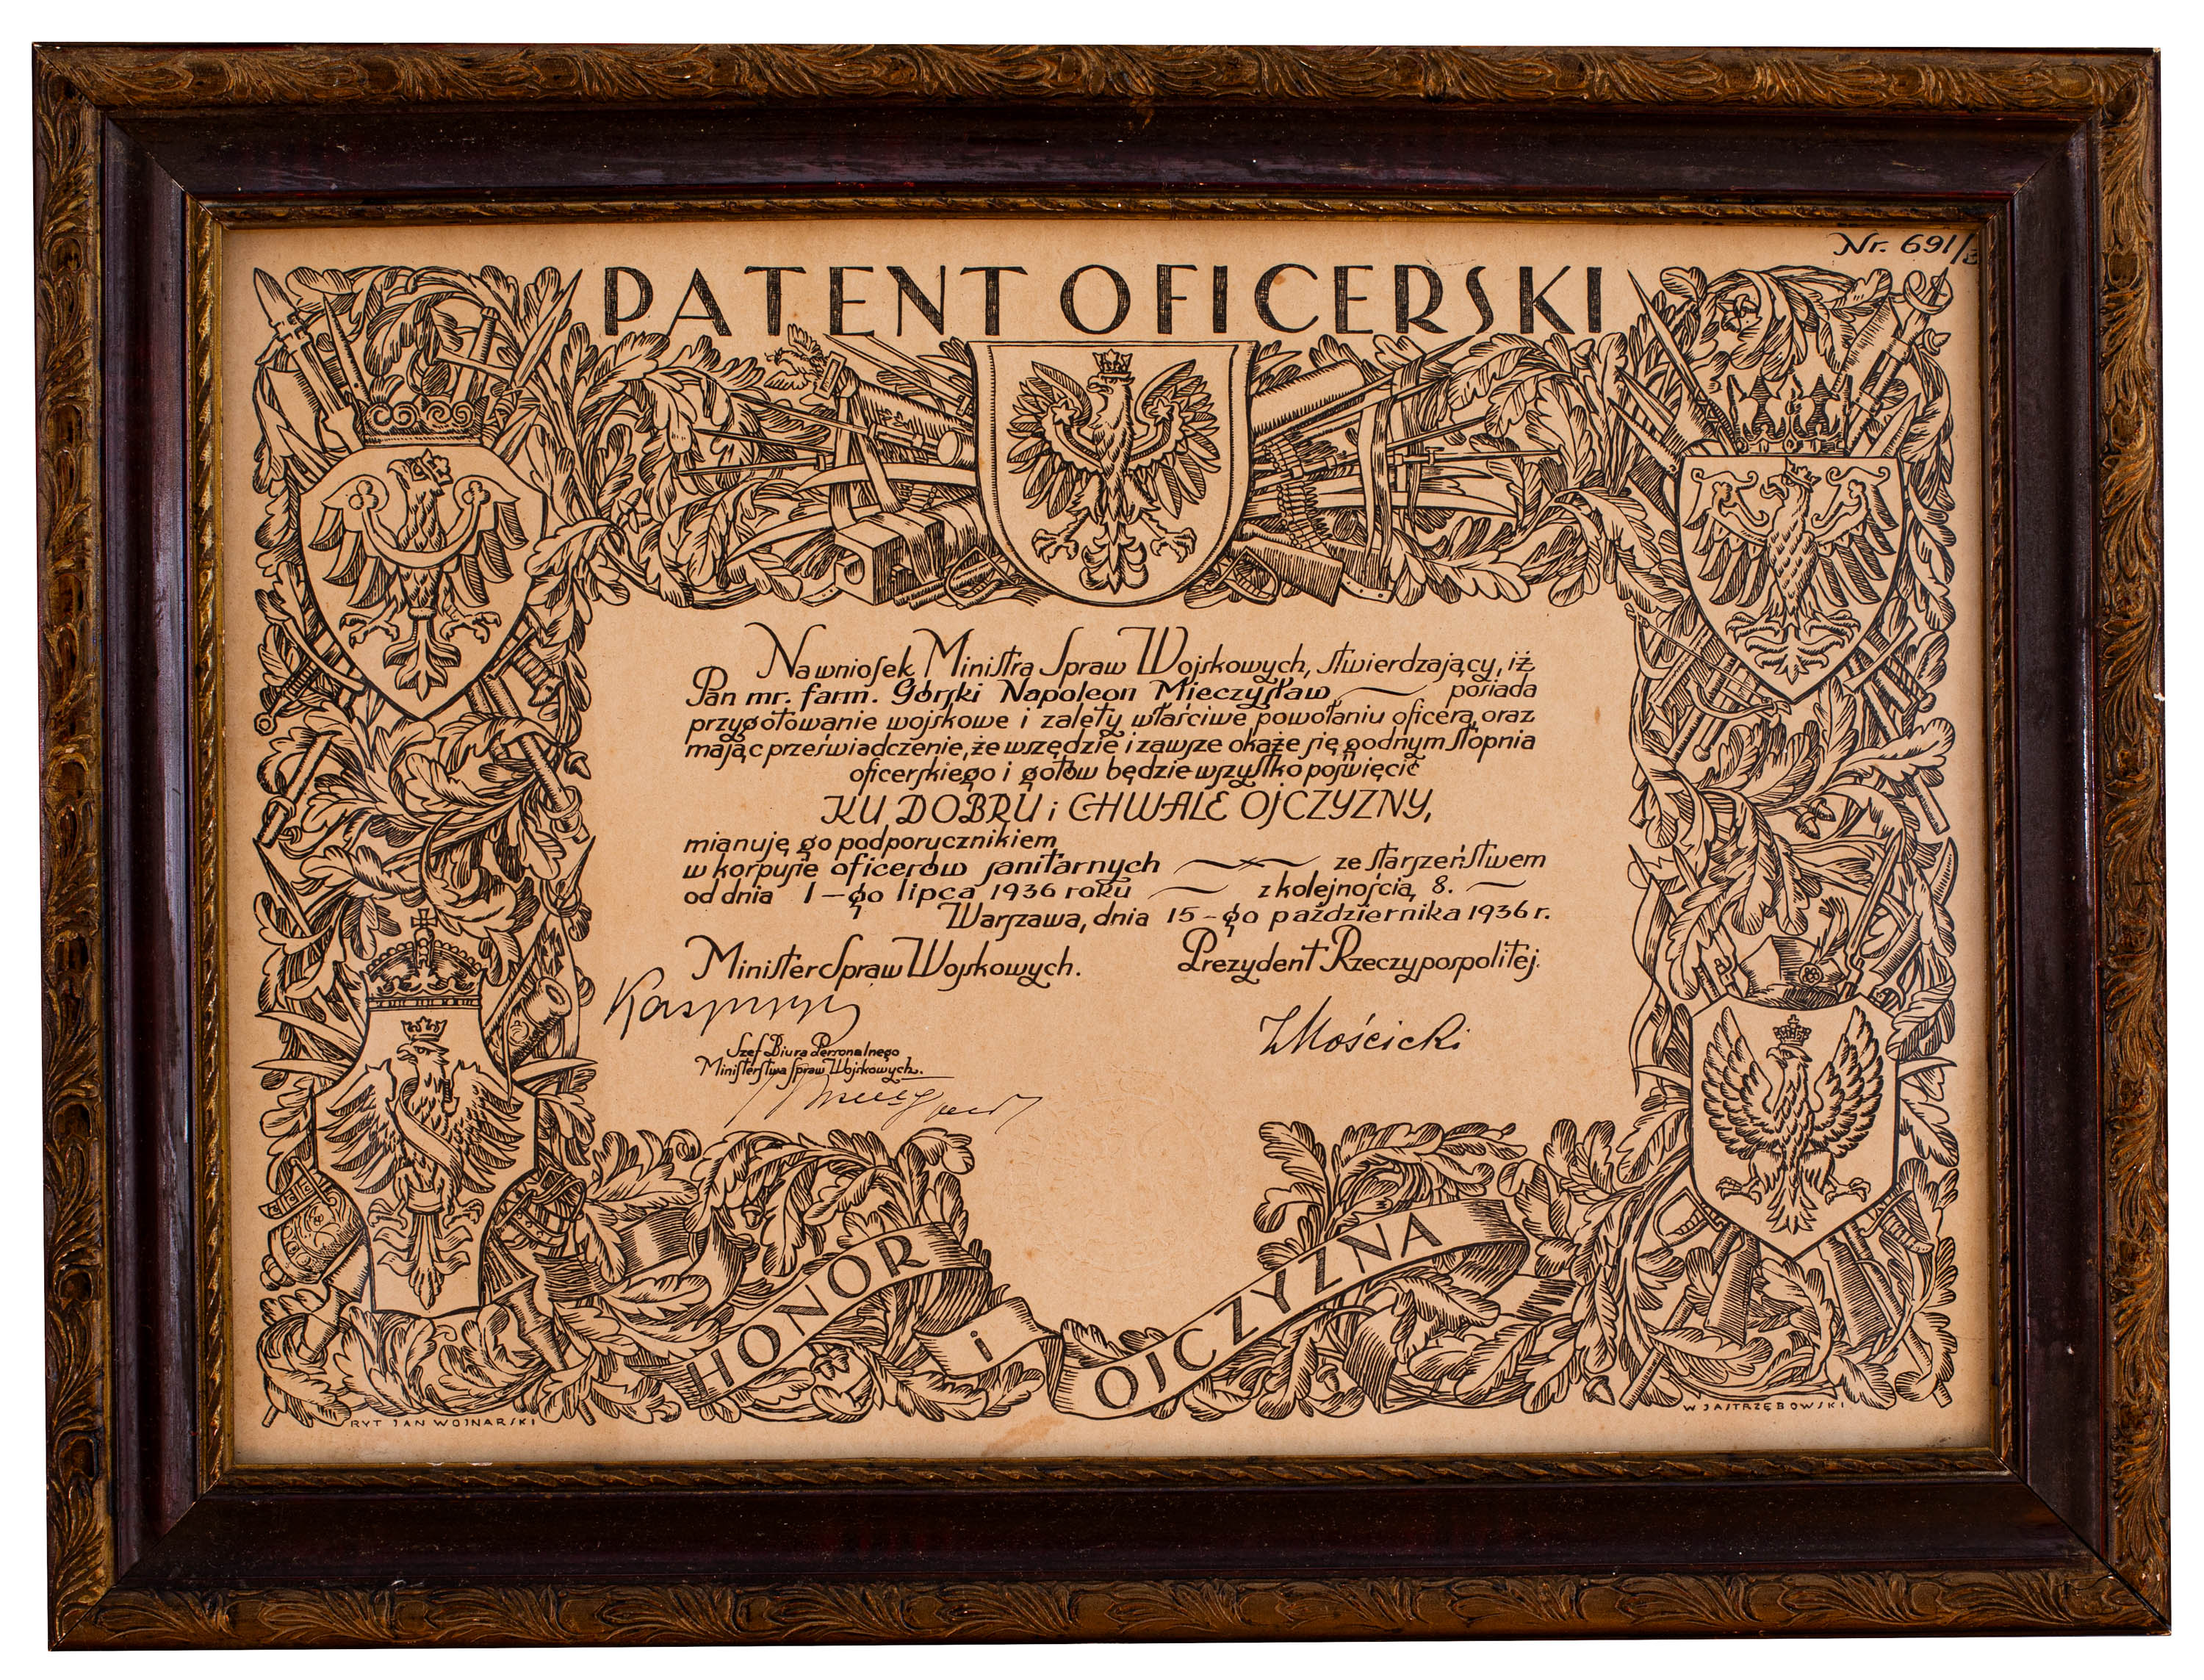 Nr. 691/3
PATENT OFICERSKI
Na wniosek Ministra Spraw Wojskowych, stwierdzający, iż
Pan mr. farm. Górski Napoleon Mieczysław posiada
przygotowanie wojskowe i zalety właściwe powołaniu oficera, oraz
mając przeświadczenie, że wszędzie i zawsze okaże się godnym stopnia
oficerskiego i gotów będzie wszystko poświęcić
KU DOBRU i CHWALE OJCZYZNY,
mianuję go podporucznikiem
w korpusie oficerów sanitarnych ze starszeństwem
od dnia 1-go lipca 1936 roku z kolejnością 8.
Warszawa, dnia 15-go października 1936 r.
Minister Spraw Wojskowych. Prezydent Rzeczypospolitej.
Kasprzycki
I Mościcki
Szef Biura Personalnego
Ministerstwa Spraw Wojskowych.
HONOR i OJCZYZNA
RYT JAN WOJNARSKI
W JASTRZĘBOWSKI